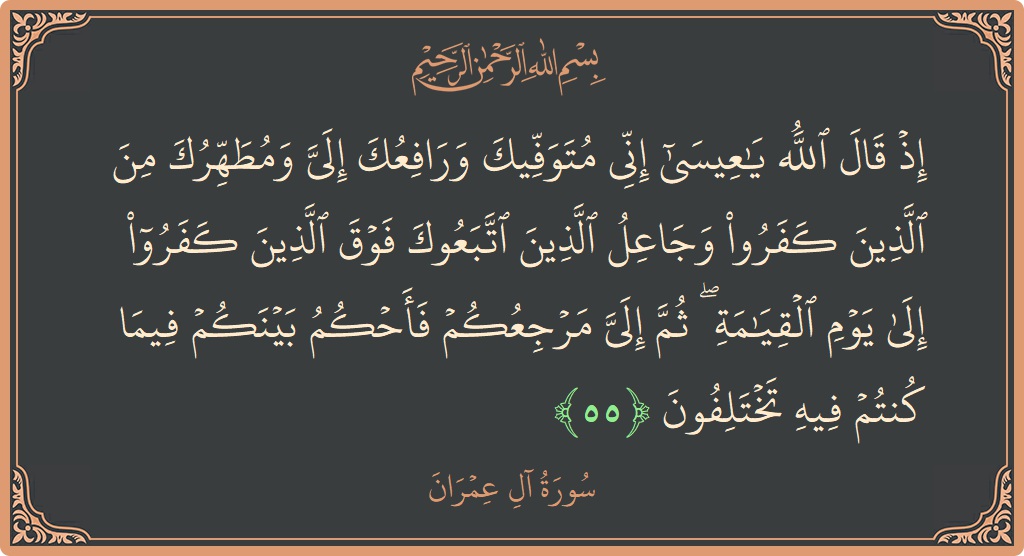 بِسْمِ اللهِ الرَّحْمٰنِ الرَّحِيْمِ
إِذْ قَالَ ٱللَّهُ يَـٰعِيسَىٰٓ إِنِّى مُتَوَفِّيكَ وَرَافِعُكَ إِلَىَّ وَمُطَهِّرُكَ مِنَ
ٱلَّذِينَ كَفَرُوا۟ وَجَاعِلُ ٱلَّذِينَ ٱتَّبَعُوكَ فَوْقَ ٱلَّذِينَ كَفَرُوٓا۟
إِلَىٰ يَوْمِ ٱلْقِيَـٰمَةِ ۖ ثُمَّ إِلَىَّ مَرْجِعُكُمْ فَأَحْكُمُ بَيْنَكُمْ فِيمَا
كُنتُمْ فِيهِ تَخْتَلِفُونَ ﴿٥٥﴾
سُورَةُ آلِ عِمْرَانَ